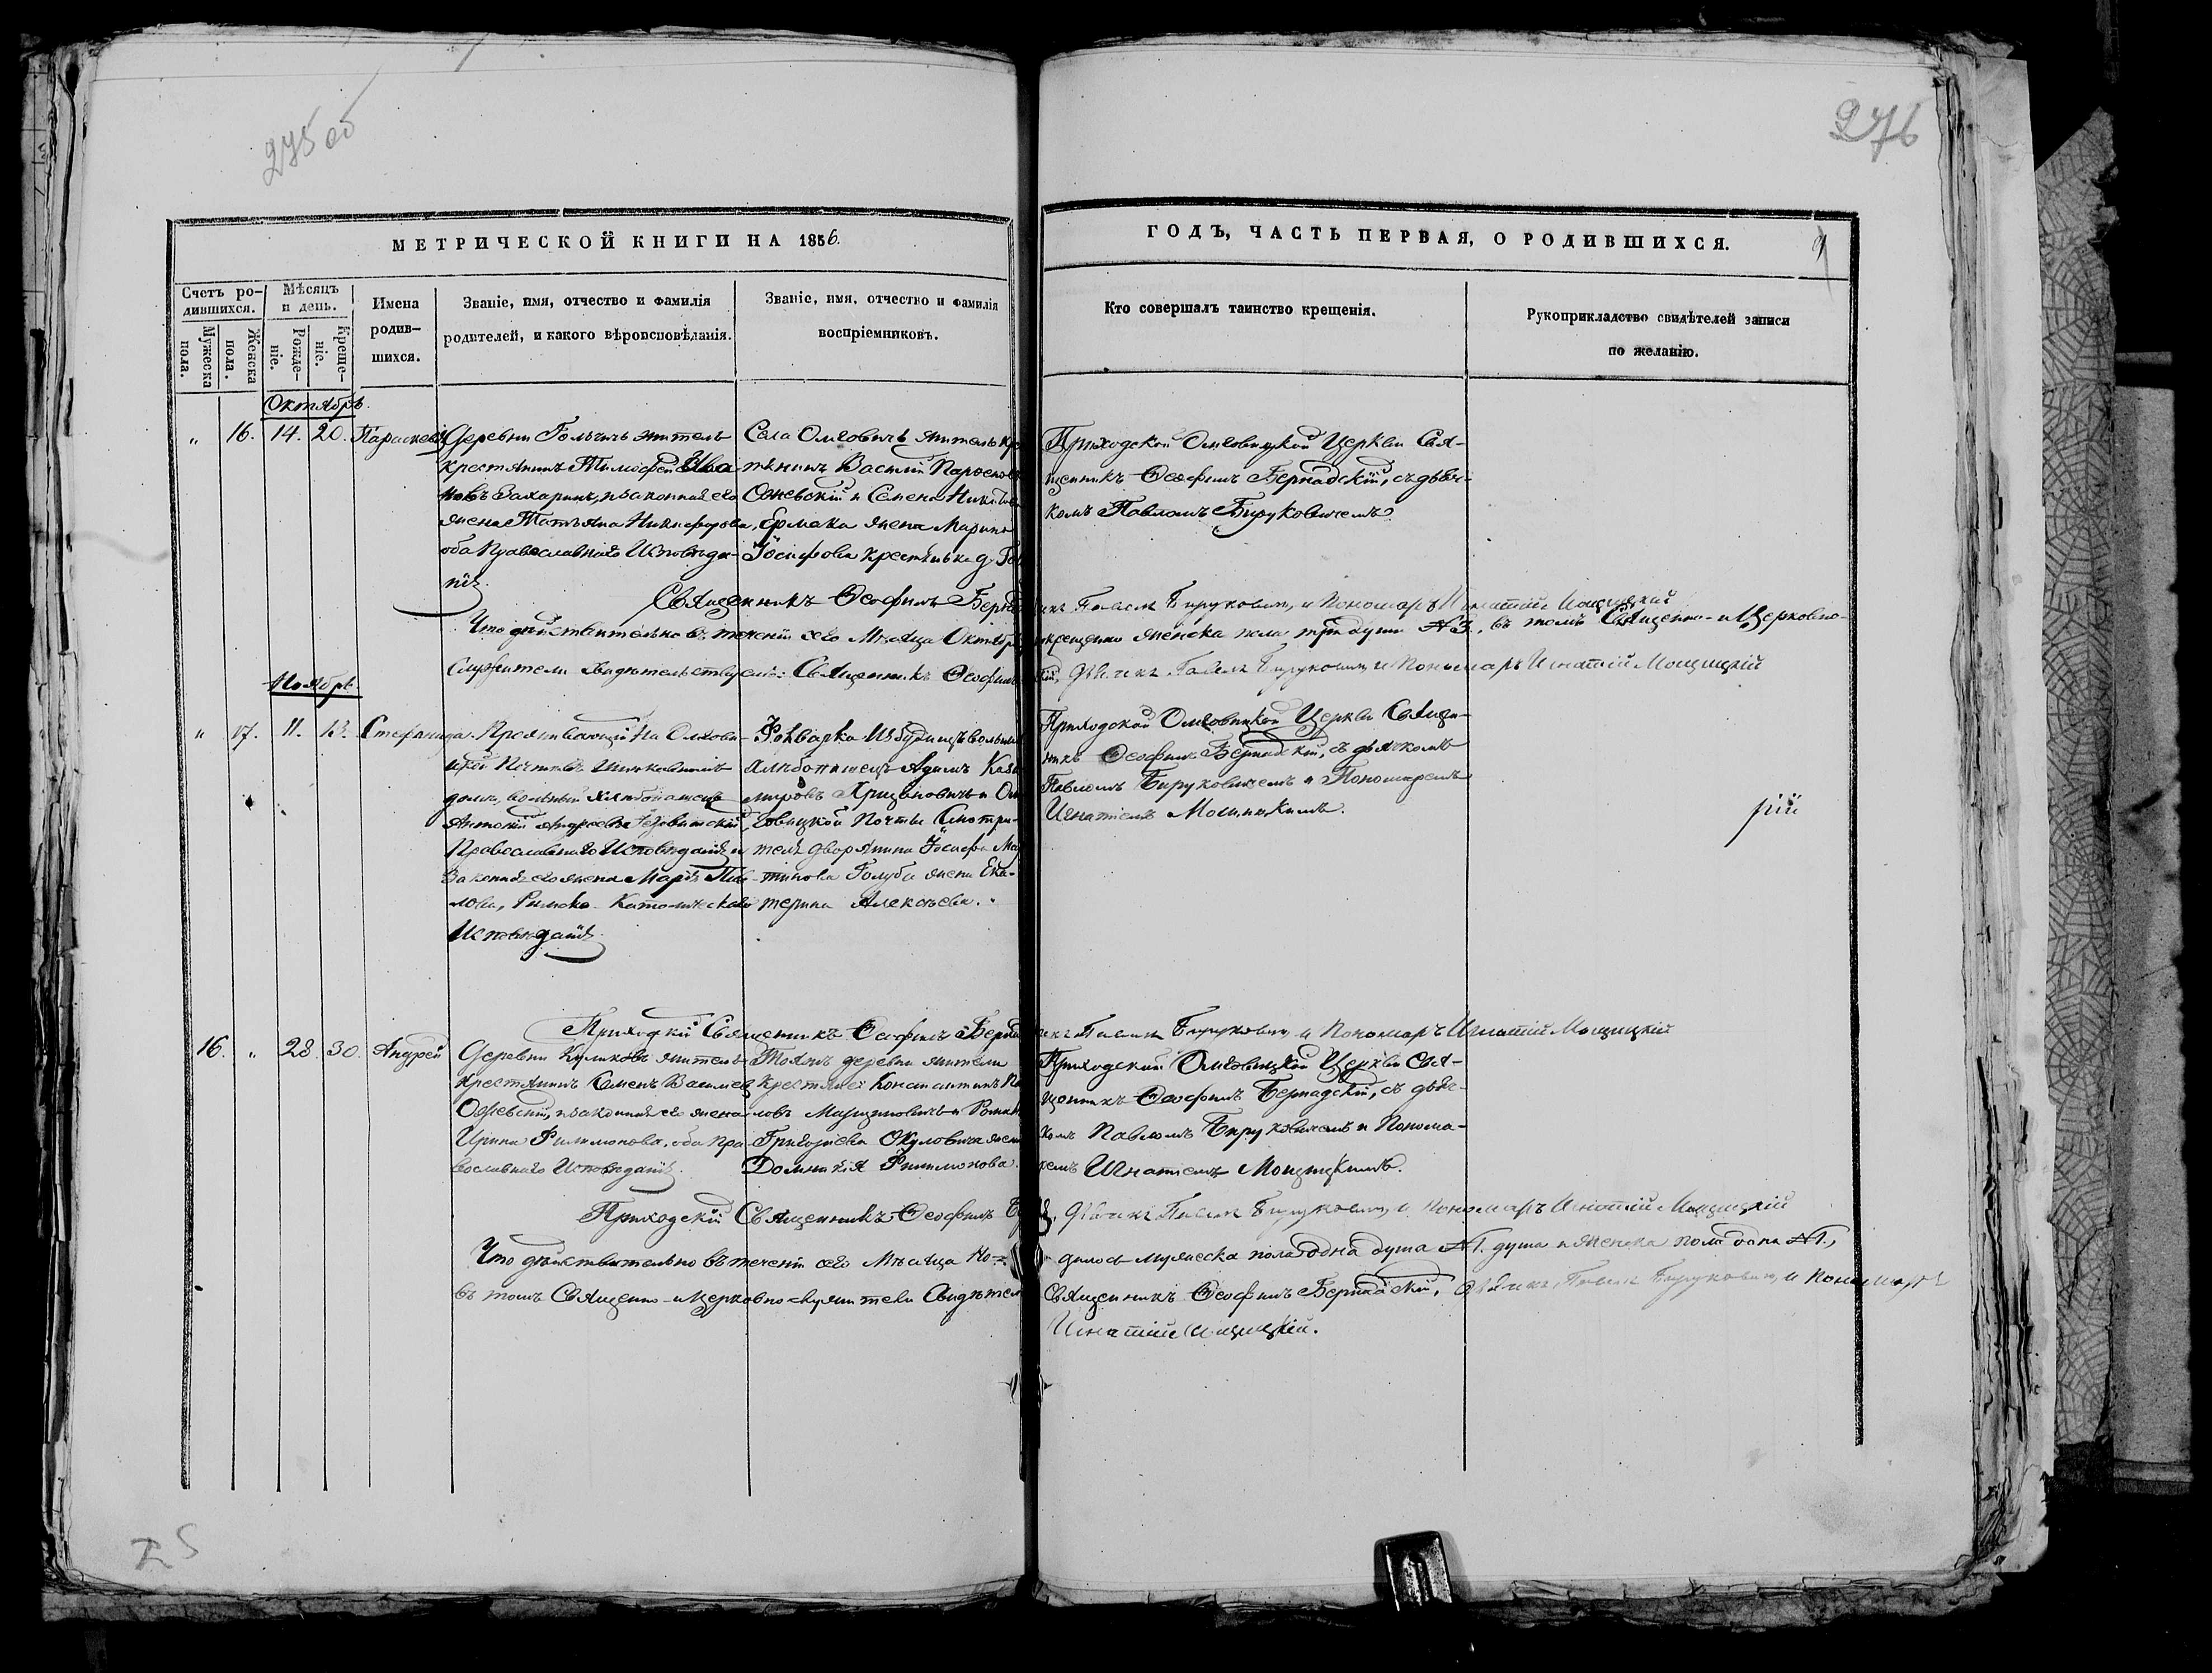 275 об
276
МЕТРИЧЕСКОЙ КНИГИ НА 1856.
ГОДЪ, ЧАСТЬ ПЕРВАЯ, О РОДИВШИХСЯ.
Счетъ ро-
дившихся.
Мужеска
пола.
Женска
пола.
Мѣсяцъ
и день.
Рожде-
ніе.
Креще-
ніе.
Имена
родив-
шихся.
Званіе, имя, отчество и фамилія
родителей, и какого вѣроисповѣданія.
Званіе, имя, отчество и фамилія
воспріемниковъ.
Кто совершалъ таинство крещенія.
Рукоприкладство свидѣтелей записи
по желанію.
Октябрь.
" 16. 14. 20.
Деревни житель
крестьянинъ Тимофей Ива-
новъ Захаричъ, и законная его
жена Татьяна Никифорова,
оба Православнаго Исповѣда-
нія.
Села Омговичъ житель кре
тянинъ Василій
и Семена
Ермака жена Марина
Іосифова крестьянка д.
Приходской Омговицкой Церкви Свя-
щенникъ Ѳеофилъ Бернадскій, съ дьяч-
комъ Павломъ Бируковичемъ
Священникъ Ѳеофилъ Берна
Павелъ Бируковичъ, и Пономарь Игнатій Мощицкій
Что дѣйствительно въ теченіи сего Мѣсяца Октября
крещенно женска пола три души №3, въ томъ Священно-и Церковно-
служители свидѣтельствуемъ: Священникъ Ѳеофилъ
Павелъ Бируковичъ и Пономарь Игнатій Мощицкій
Ноябрь
" 17. 11. 13. Стефанида.
Проживающій На Омгови-
цкой Почтѣ
вольный хлѣбопашецъ
Антоній Андреевъ
Православнаго Исповѣданія и
Законная его жена Марія Пав-
лова, Римско-Католическаго
Исповѣданія.
Фольварка вольный
хлѣбопашецъ Адамъ Кази
мировъ и Ом
говицкой Почты Смотри-
теля дворянина Іосифа Мар
тинова Голуба жена Ека-
терина Алексѣева.
Приходской Омговицкой Церкви Священ-
никъ Ѳеофилъ Бернадскій, съ дьячкомъ
Павломъ Бируковичемъ и Пономаремъ
Игнатіемъ Мощицкимъ.
рій
Приходскій Священникъ Ѳеофилъ Берна
Павелъ Бируковичъ, и Пономарь Игнатій Мощицкій
16. " 28. 30. Андрей
Деревни Куликовъ житель
крестьянинъ Семенъ Васильевъ
и законная его жена
Ирина Филимонова, оба Пра-
вославнаго Исповѣданія.
Тояжъ деревни жители
крестьяне: Константинъ
ловъ и Романа
Григорьева Окуловича жена
Домникія Филимонова.
Приходской Омговицкой Церкви Свя-
щенникъ Ѳеофилъ Бернадскій, съ дьяч-
комъ Павломъ Бируковичемъ и Понома-
ремъ Игнатіемъ Мощицкимъ.
Приходскій Священникъ Ѳеофилъ
Дьячекъ Павелъ Бируковичъ, и Пономарь Игнатій Мощицкій
Что дѣйствительно въ теченіи сего Мѣсяца Но-
дилось мужеска пола одна душа №1. душа и женска пола одна №1.,
въ томъ Священно-и Церковно-служители Свидѣтел
Священникъ Ѳеофилъ Бернадскій, Дьячекъ Павелъ Бируковичъ, и Пономарь
Игнатій Мощицкій.